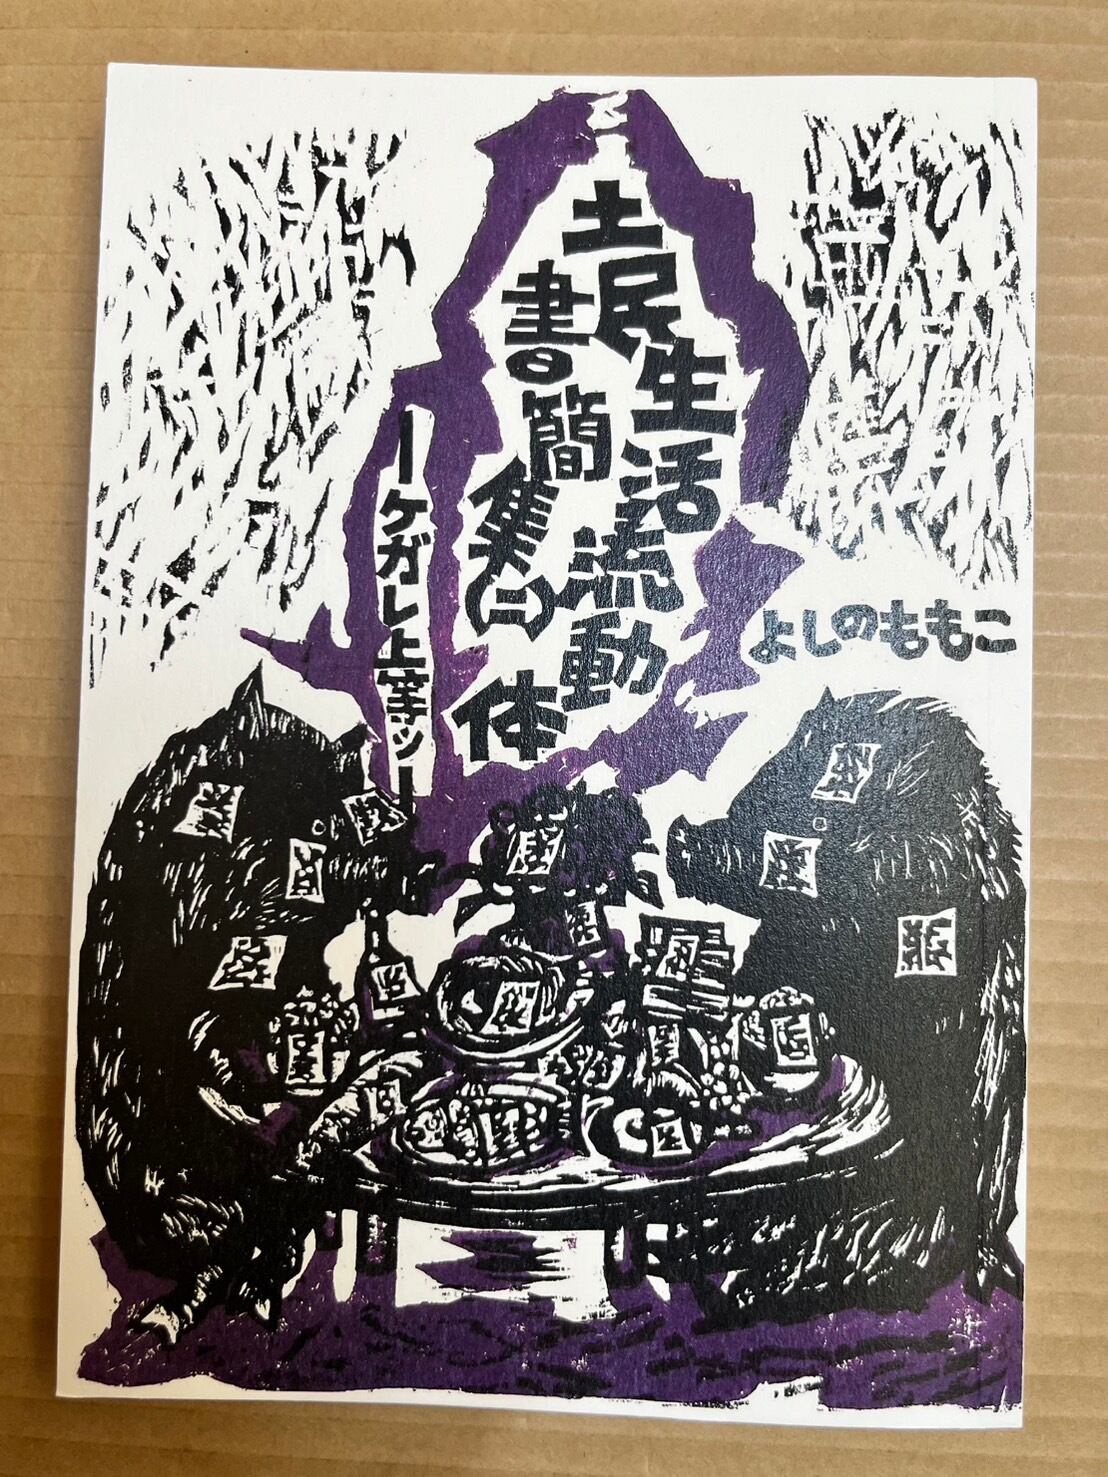 土民生活流動体
書簡集(二)
―ケガレ上等ッ―
よしのももこ